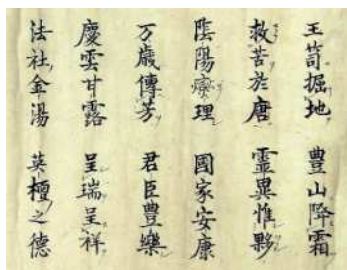 王笥掘地 豊山降霜
救苦於唐 靈異惟夥
陰陽燮理 國家安康
万歳傳芳 君臣豊樂
慶雲甘露 呈瑞呈祥
法社金湯 英檀之德